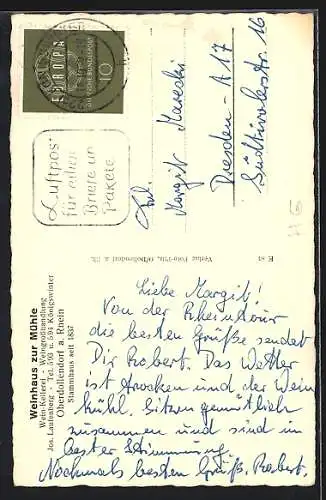 EUROPA
DEUTSCHE BUNDESPOST
10
Luftpost
für eilige
Briefe un
Pakete
Frl.
Margit
Dresden - A 17
16
Weinhaus zur Mühle
Wein-Kellerei - Weingroßhandlung
Jos. Lautenberg - Tel. 193 u. 594 Königswinter
Oberdollendorf a. Rhein
Stammhaus seit 1857
E 81
Oberdollendorf a. Rh.
Liebe Margit!
Von der Rheintour
die besten Grüße sendet
Dir Robert. Das Wetter
ist trocken und der Wein
kühl. Sitzen gemütlich
zusammen und sind in
bester Stimmung.
Nochmals besten Gruß. Robert.